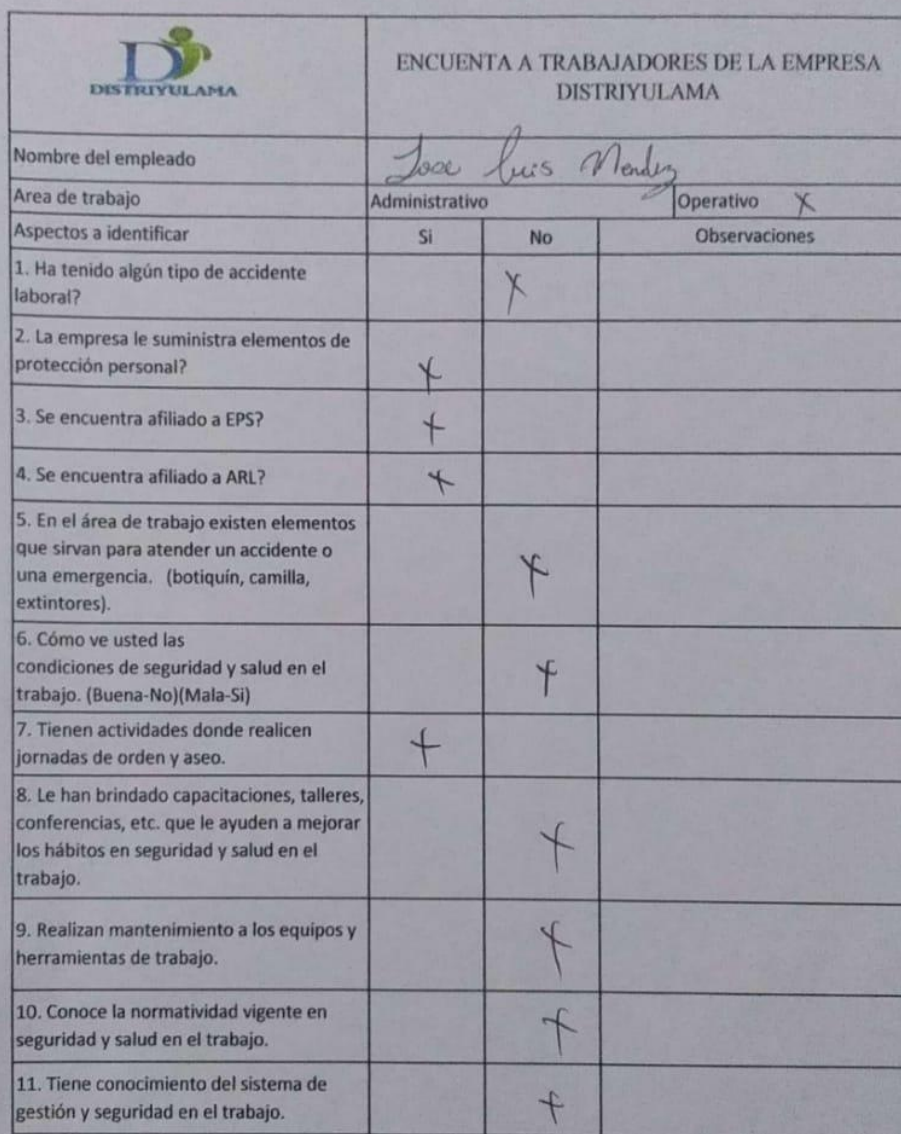 DISTRIYULAMA
ENCUENTA A TRABAJADORES DE LA EMPRESA
DISTRIYULAMA
Nombre del empleado Jose Luis Mendez
Area de trabajo Administrativo Operativo X
Aspectos a identificar Si No Observaciones
1. Ha tenido algún tipo de accidente
laboral? X
2. La empresa le suministra elementos de
protección personal? X
3. Se encuentra afiliado a EPS? X
4. Se encuentra afiliado a ARL? X
5. En el área de trabajo existen elementos
que sirvan para atender un accidente o
una emergencia. (botiquín, camilla, X
extintores).
6. Cómo ve usted las
condiciones de seguridad y salud en el X
trabajo. (Buena-No)(Mala-Si)
7. Tienen actividades donde realicen X
jornadas de orden y aseo.
8. Le han brindado capacitaciones, talleres,
conferencias, etc. que le ayuden a mejorar X
los hábitos en seguridad y salud en el
trabajo.
9. Realizan mantenimiento a los equipos y X
herramientas de trabajo.
10. Conoce la normatividad vigente en X
seguridad y salud en el trabajo.
11. Tiene conocimiento del sistema de
gestión y seguridad en el trabajo. X